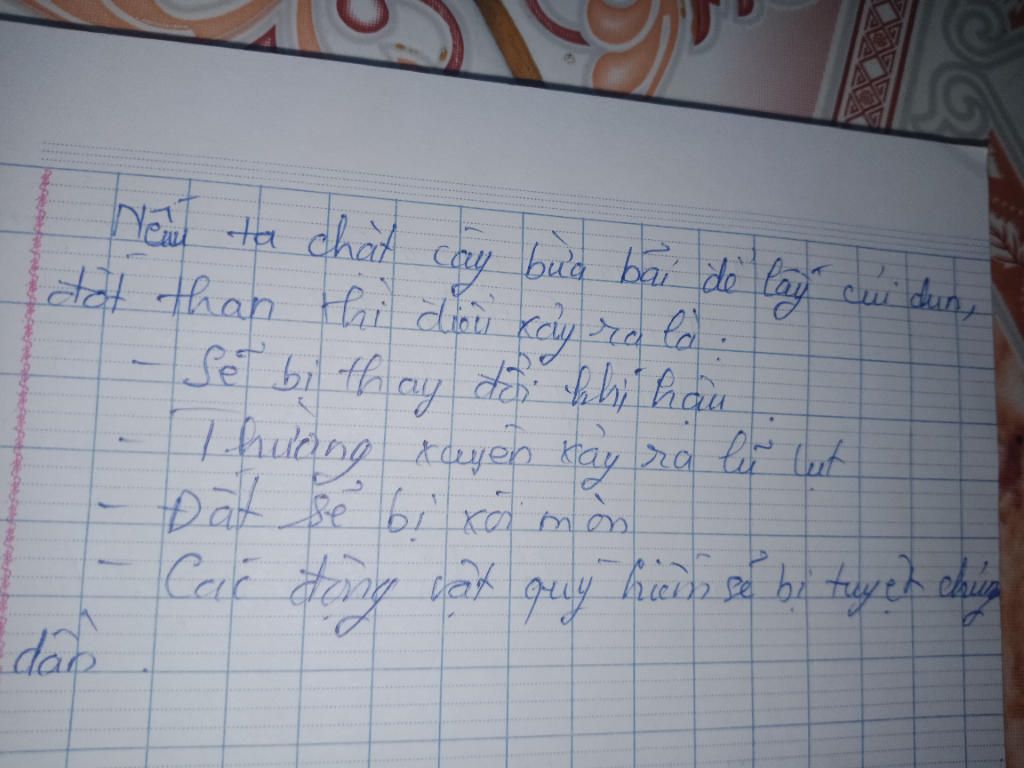 Nếu ta chặt cây bừa bãi để lấy củi đun,
đốt than thì điều xảy ra là :
- Sẽ bị thay đổi khí hậu.
- Thường xuyên xảy ra lũ lụt
- Đất sẽ bị xói mòn
- Các động vật quý hiếm sẽ bị tuyệt chủng
dần .